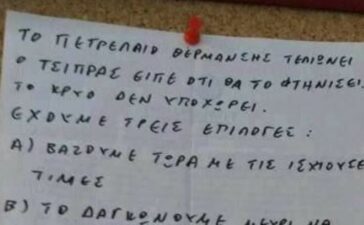 ΤΟ ΠΕΤΡΕΛΑΙΟ ΘΕΡΜΑΝΣΗΣ ΤΕΛΙΩΝΕΙ
Ο ΤΣΙΠΡΑΣ ΕΙΠΕ ΟΤΙ ΘΑ ΤΟ ΦΤΗΝΙΣΕΙ.
ΤΟ ΚΡΥΟ ΔΕΝ ΥΠΟΧΩΡΕΙ.
ΕΧΟΥΜΕ ΤΡΕΙΣ ΕΠΙΛΟΓΕΣ :
Α) ΒΑΖΟΥΜΕ ΤΩΡΑ ΜΕ ΤΙΣ ΙΣΧΙΟΥΣΕ
ΤΙΜΕΣ
Β) ΤΟ ΔΑΓΚΩΝΟΥΜΕ ΜΕΧΡΙ ΝΑ